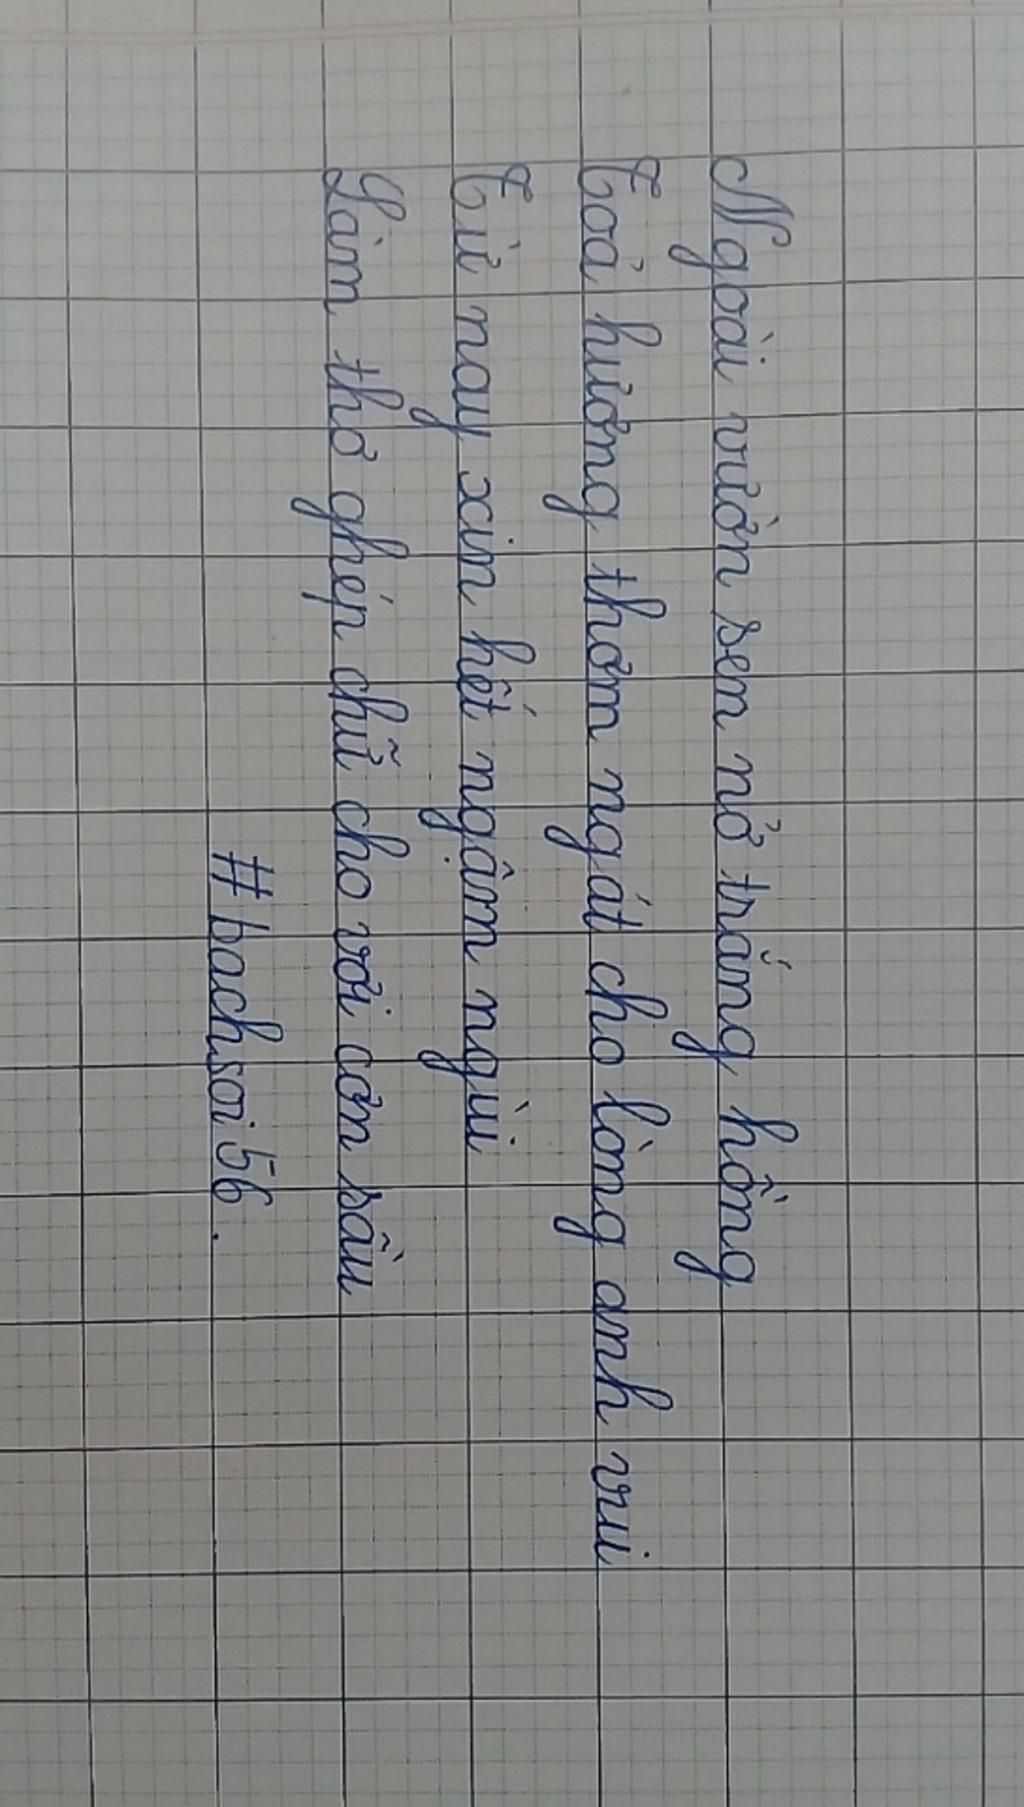 Ngoài vườn sen nở trắng hồng
Toả hương thơm ngát cho lòng anh vui
Từ nay xin hết ngậm ngùi
Làm thơ ghép chữ cho vơi cơn sầu
#bachsoi56.